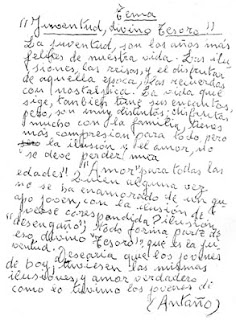 Tema
"Juventud, divino Tesoro!!
La juventud, son los años más
felices de nuestra vida. Las ilu-
siones, las risas, y el disfrutar
de aquella época, las recuerdas
con nostalgica. La vida que
sige, tanbien tiene sus encantos,
pero, son muy distintos; disfrutas
mucho con la familia, tienes
más compresion para todo, pero
la ilusión y el amor, no
se deve perder nuca
"Amor" para todas las
edades" Quien alguna vez
no se ha enamorado de un gu
apo joven, con la ilusión de
fuese corespondida? ilusión,
desengaño") todo forma parte de
ese divino Tesoro", que es la ju
ventud. Desearia que los jovenes
de hoy, tuviesen las mismas
ilusiones, y amor verdadero
como lo tuvimo los jovenes di
(Antaño)